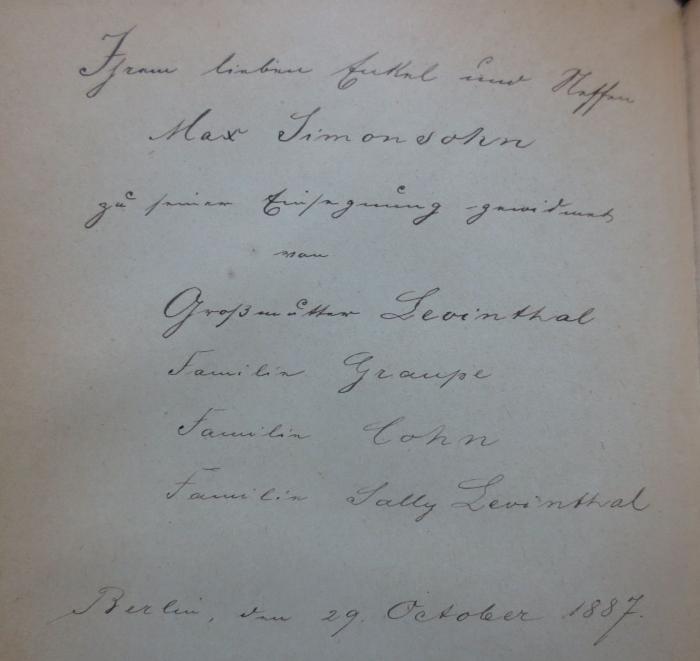 Ihrem lieben Enkel und Neffen
Max Simonsohn
zu seiner Einsegnung gewidmet
von
Großmutter Levinthal
Familie Graupe
Familie Cohn
Familie Sally Levinthal
Berlin, den 29. October 1887.